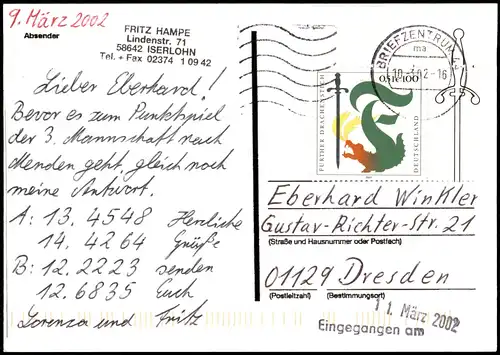 9. März 2002
Absender
FRITZ HAMPE
Lindenstr. 71
58642 ISERLOHN
Tel. + Fax 02374 1 09 42
Lieber Eberhard!
Bevor es zum Punktspiel
der 3. Mannschaft nach
Menden geht, gleich noch
meine Antwort.
A: 13. 4548 Herzliche
14. 4264 Grüße
B: 12. 2223 senden
12. 6835 Euch
Lorenza und Fritz
BRIEFZENTRUM
ma
-16
FURTHER DRACHENSTICH
DEUTSCHLAND
Eberhard Winkler
Gustav-Richter-Str. 21
(Straße und Hausnummer oder Postfach)
01129 Dresden
(Postleitzahl) (Bestimmungsort)
11. März 2002
Eingegangen am